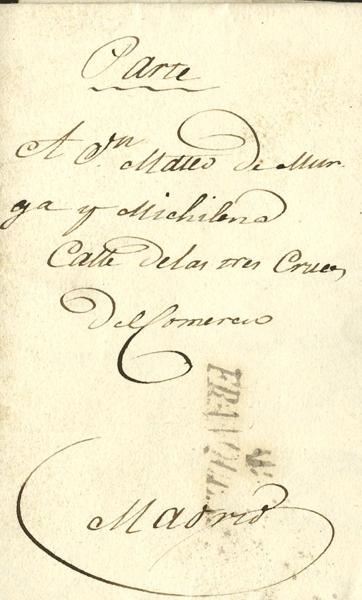 Parte
A Dn Mateo de Mur-
ga y Michilena
Calle de las tres Cruces
del Comercio
FRANQUE
Madrid